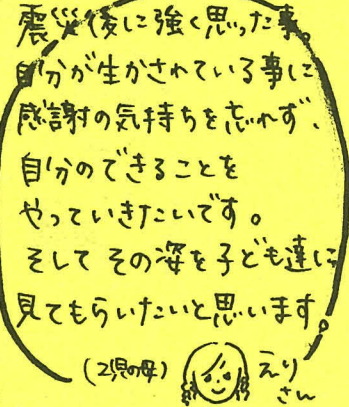 震災後に強く思った事。
自分が生かされている事に
感謝の気持ちを忘れず、
自分のできることを
やっていきたいです。
そして その姿を子ども達に
見てもらいたいと思います。
(2児の母)
えり
さん